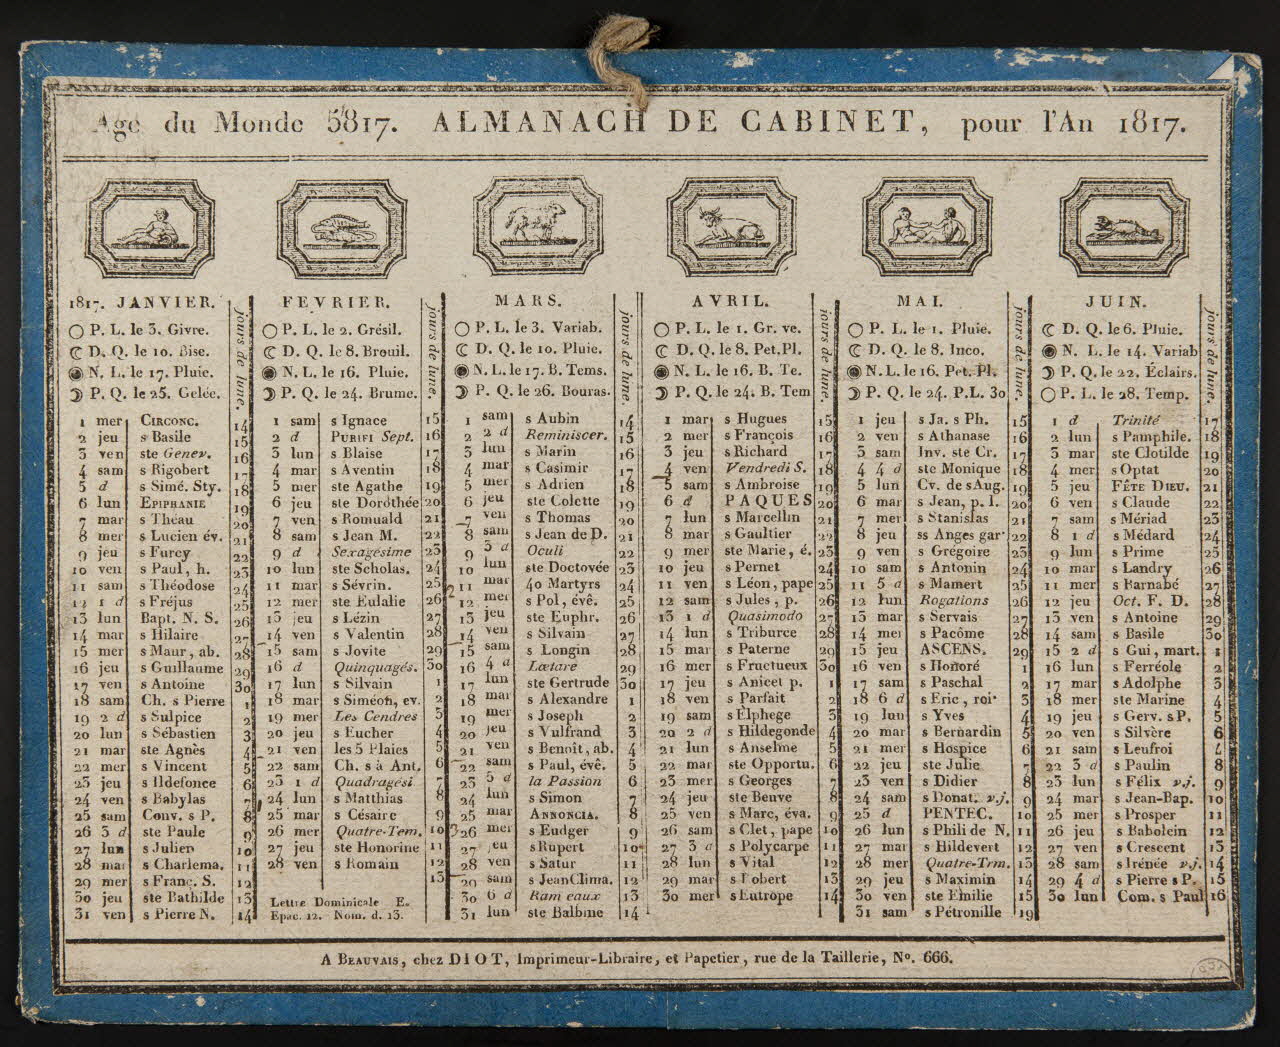 Age du Monde 5817. ALMANACH DE CABINET, pour l'An 1817.
1817. JANVIER.
jours de lune.
P. L. le 3. Givre.
D. Q. le 10. Bise.
N. L. le 17. Pluie.
P. Q. le 25. Gelée.
1 mer CIRCONC. 14
2 jeu s Basile 15
3 ven ste Genev. 16
4 sam s Rigobert 17
5 d s Simé. Sty. 18
6 lun EPIPHANIE 19
7 mar s Théau 20
8 mer s Lucien év. 21
9 jeu s Furcy 22
10 ven s Paul, h. 23
11 sam s Théodose 24
12 1 d s Fréjus 25
13 lun Bapt. N. S. 26
14 mar s Hilaire 27
15 mer s Maur, ab. 28
16 jeu s Guillaume 29
17 ven s Antoine 30
18 sam Ch. s Pierre 1
19 2 d s Sulpice 2
20 lun s Sébastien 3
21 mar ste Agnès 4
22 mer s Vincent 5
23 jeu s Ildefonce 6
24 ven s Babylas 7
25 sam Conv. s P. 8
26 3 d ste Paule 9
27 lun s Julien 10
28 mar s Charlema. 11
29 mer s Franç. S. 12
30 jeu ste Bathilde 13
31 ven s Pierre N. 14
FEVRIER.
jours de lune.
P. L. le 2. Grésil.
D. Q. le 8. Brouil.
N. L. le 16. Pluie.
P. Q. le 24. Brume.
1 sam s Ignace 15
2 d PURIFI Sept. 16
3 lun s Blaise 17
4 mar s Aventin 18
5 mer ste Agathe 19
6 jeu ste Dorothée 20
7 ven s Romuald 21
8 sam s Jean M. 22
9 d Sexagésime 23
10 lun ste Scholas. 24
11 mar s Sévrin. 25
12 mer ste Eulalie 26
13 jeu s Lézin 27
14 ven s Valentin 28
15 sam s Jovite 29
16 d Quinquagés. 30
17 lun s Silvain 1
18 mar s Siméon, ev. 2
19 mer Les Cendres 3
20 jeu s Eucher 4
21 ven les 5 Plaies 5
22 sam Ch. s à Ant. 6
23 1 d Quadragési 7
24 lun s Matthias 8
25 mar s Césaire 9
26 mer Quatre-Tem. 10
27 jeu ste Honorine 11
28 ven s Romain 12
13
Lettre Dominicale E.
Epac. 12. Nom. d. 13.
MARS.
jours de lune.
P. L. le 3. Variab.
D. Q. le 10. Pluie.
N. L. le 17. B. Tems.
P. Q. le 26. Bouras.
1 sam s Aubin 14
2 2 d Reminiscer. 15
3 lun s Marin 16
4 mar s Casimir 17
5 mer s Adrien 18
6 jeu ste Colette 19
7 ven s Thomas 20
8 sam s Jean de D. 21
9 3 d Oculi 22
10 lun ste Doctovée 23
11 mar 40 Martyrs 24
12 mer s Pol, évê. 25
13 jeu ste Euphr. 26
14 ven s Silvain 27
15 sam s Longin 28
16 4 d Lætare 29
17 lun ste Gertrude 30
18 mar s Alexandre 1
19 mer s Joseph 2
20 jeu s Vulfrand 3
21 ven s Benoît, ab. 4
22 sam s Paul, évê. 5
23 5 d la Passion 6
24 lun s Simon 7
25 mar ANNONCIA. 8
26 mer s Eudger 9
27 jeu s Rupert 10
28 ven s Satur 11
29 sam s Jean Clima. 12
30 6 d Rameaux 13
31 lun ste Balbine 14
AVRIL.
jours de lune.
P. L. le 1. Gr. ve.
D. Q. le 8. Pet. Pl.
N. L. le 16. B. Te.
P. Q. le 24. B. Tem
1 mar s Hugues 15
2 mer s François 16
3 jeu s Richard 17
4 ven Vendredi S. 18
5 sam s Ambroise 19
6 d PAQUES 20
7 lun s Marcellin 21
8 mar s Gaultier 22
9 mer ste Marie, é. 23
10 jeu s Pernet 24
11 ven s Léon, pape 25
12 sam s Jules, p. 26
13 1 d Quasimodo 27
14 lun s Triburce 28
15 mar s Paterne 29
16 mer s Fructueux 30
17 jeu s Anicet p. 1
18 ven s Parfait 2
19 sam s Elphege 3
20 2 d s Hildegonde 4
21 lun s Anselme 5
22 mar ste Opportu. 6
23 mer s Georges 7
24 jeu ste Beuve 8
25 ven s Marc, éva. 9
26 sam s Clet, pape 10
27 3 d s Polycarpe 11
28 lun s Vital 12
29 mar s Robert 13
30 mer s Eutrope 14
MAI.
jours de lune.
P. L. le 1. Pluie.
D. Q. le 8. Inco.
N. L. le 16. Pet. Pl.
P. Q. le 24. P.L. 30
1 jeu s Ja. s Ph. 15
2 ven s Athanase 16
3 sam Inv. ste Cr. 17
4 4 d ste Monique 18
5 lun Cv. de s Aug. 19
6 mar s Jean, p. l. 20
7 mer s Stanislas 21
8 jeu ss Anges gar. 22
9 ven s Grégoire 23
10 sam s Antonin 24
11 5 d s Mamert 25
12 lun Rogations 26
13 mar s Servais 27
14 mer s Pacôme 28
15 jeu ASCENS. 29
16 ven s Honoré 1
17 sam s Paschal 2
18 6 d s Eric, roi 3
19 lun s Yves 4
20 mar s Bernardin 5
21 mer s Hospice 6
22 jeu ste Julie 7
23 ven s Didier 8
24 sam s Donat. v.j. 9
25 d PENTEC. 10
26 lun s Phili de N. 11
27 mar s Hildevert 12
28 mer Quatre-Tem. 13
29 jeu s Maximin 14
30 ven ste Emilie 15
31 sam s Pétronille 19
JUIN.
jours de lune.
D. Q. le 6. Pluie.
N. L. le 14. Variab
P. Q. le 22. Éclairs.
P. L. le 28. Temp.
1 d Trinité 17
2 lun s Pamphile. 18
3 mar ste Clotilde 19
4 mer s Optat 20
5 jeu FÊTE DIEU. 21
6 ven s Claude 22
7 sam s Mériad 23
8 1 d s Médard 24
9 lun s Prime 25
10 mar s Landry 26
11 mer s Barnabé 27
12 jeu Oct. F. D. 28
13 ven s Antoine 29
14 sam s Basile 30
15 2 d s Gui, mart. 1
16 lun s Ferréole 2
17 mar s Adolphe 3
18 mer ste Marine 4
19 jeu s Gerv. s P. 5
20 ven s Silvère 6
21 sam s Leufroi 7
22 3 d s Paulin 8
23 lun s Félix v.j. 9
24 mar s Jean-Bap. 10
25 mer s Prosper 11
26 jeu s Babolein 12
27 ven s Crescent 13
28 sam s Irénée v.j. 14
29 4 d s Pierre s P. 15
30 lun Com. s Paul 16
A BEAUVAIS, chez DIOT, Imprimeur-Libraire, et Papetier, rue de la Taillerie, No. 666.